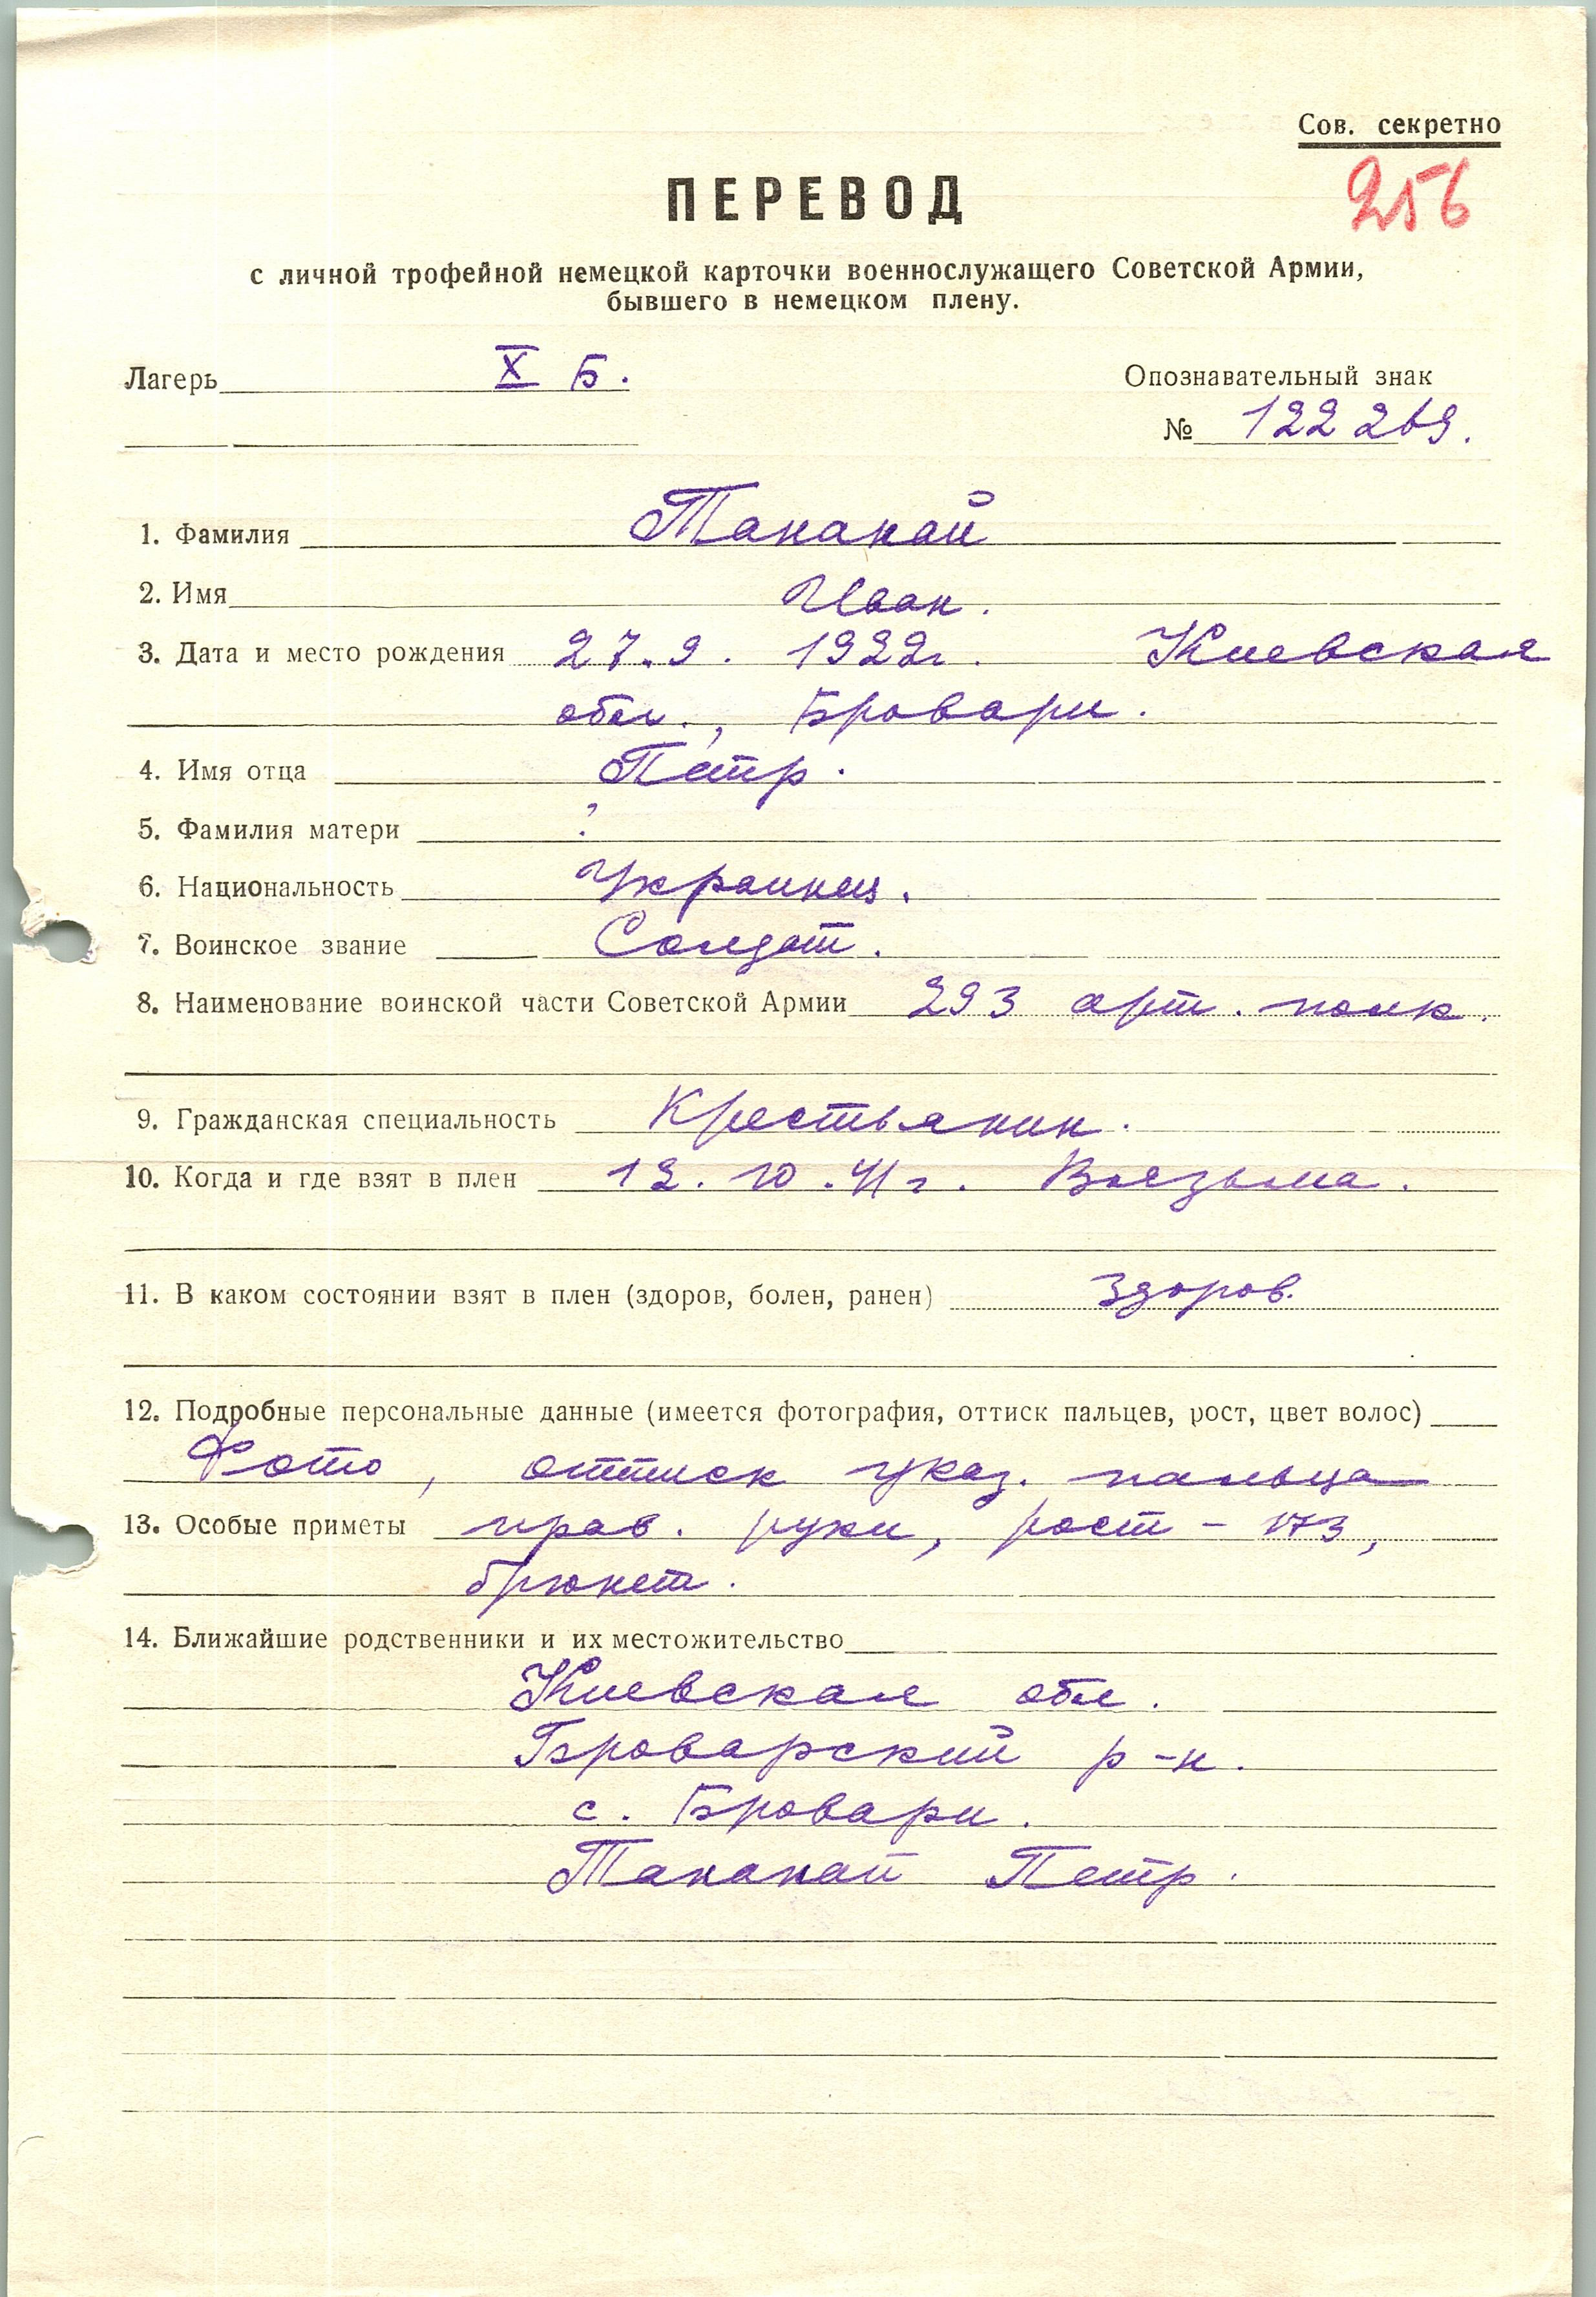 Сов. секретно
256
ПЕРЕВОД
с личной трофейной немецкой карточки военнослужащего Советской Армии,
бывшего в немецком плену.
Лагерь X Б.
Опознавательный знак
№ 122269.
1. Фамилия Танакай
2. Имя Иван.
3. Дата и место рождения 27.9. 1922г. Киевская
обл., Бровари.
4. Имя отца Петр.
5. Фамилия матери ?
6. Национальность Украинец.
7. Воинское звание Солдат.
8. Наименование воинской части Советской Армии 293 арт. полк.
9. Гражданская специальность Крестьянин.
10. Когда и где взят в плен 12.10.41г. Вязьма.
11. В каком состоянии взят в плен (здоров, болен, ранен) здоров.
12. Подробные персональные данные (имеется фотография, оттиск пальцев, рост, цвет волос)
Фото, оттиск указ. пальца
13. Особые приметы прав. руки, рост - 173,
брюнет.
14. Ближайшие родственники и их местожительство
Киевская обл.
Броварский р-н.
с. Бровари.
Танакай Петр.